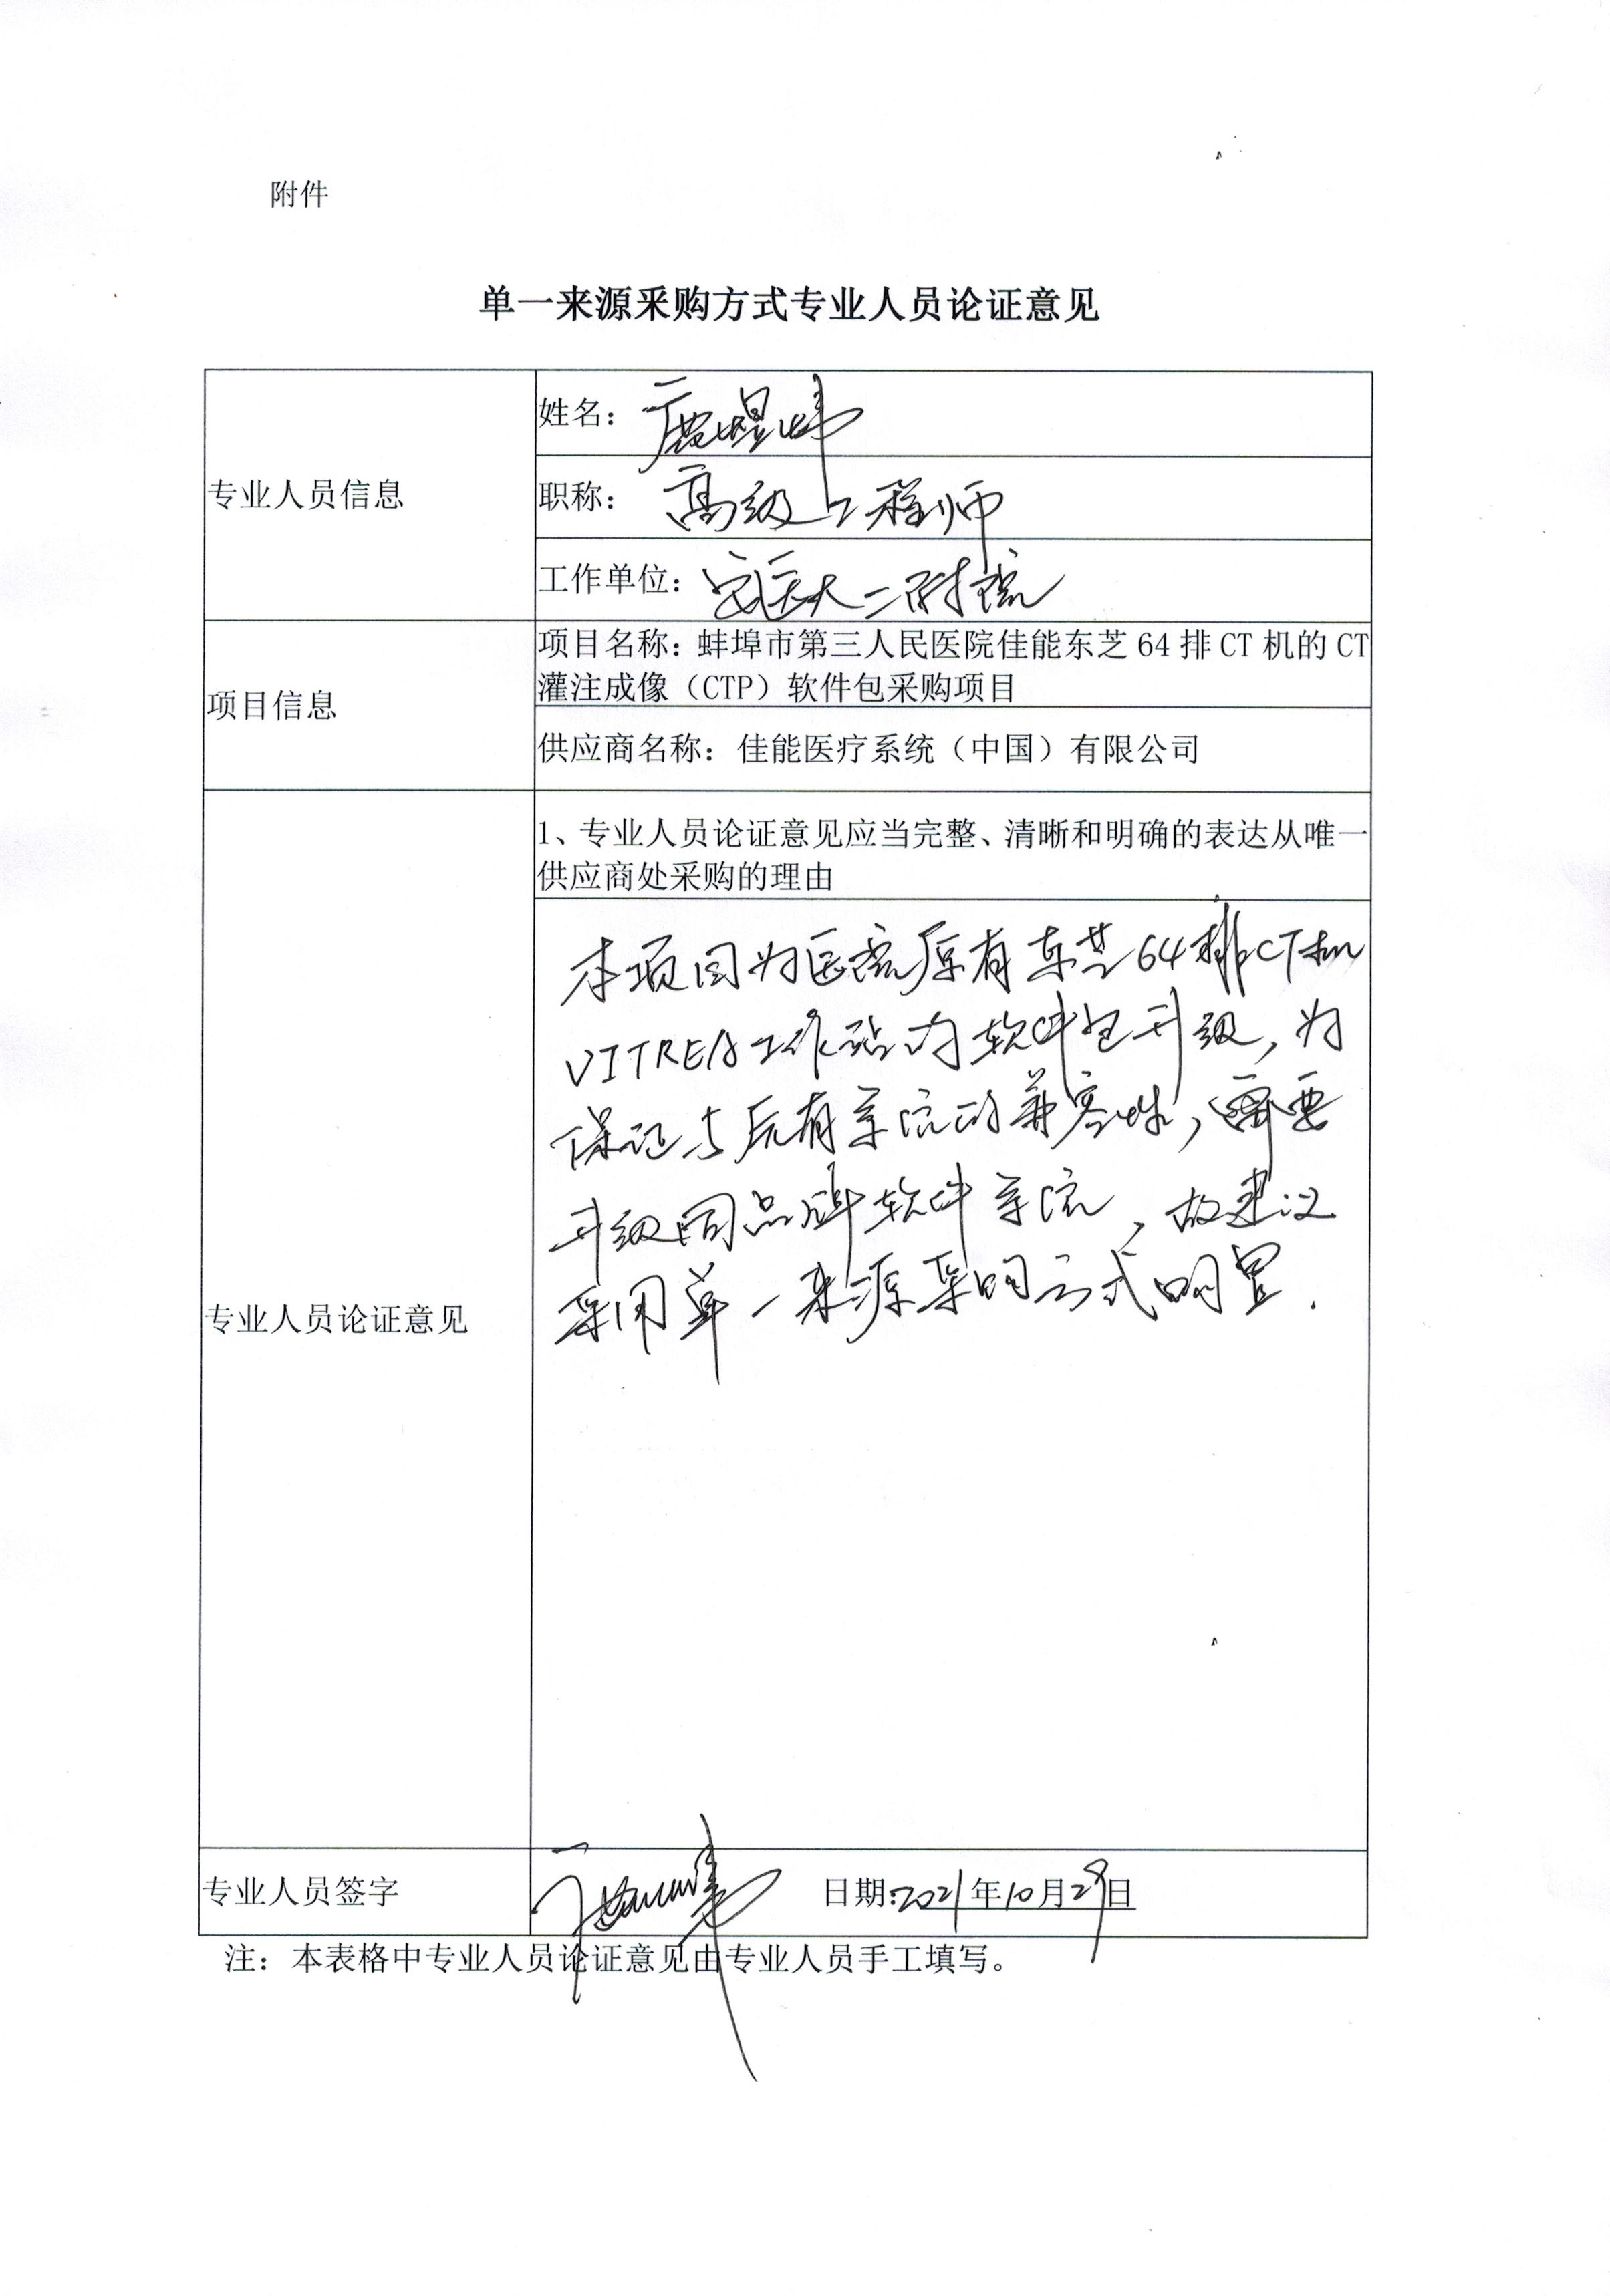 附件
单一来源采购方式专业人员论证意见
专业人员信息
姓名：鹿煜炜
职称：高级工程师
工作单位：安医大二附院
项目信息
项目名称：蚌埠市第三人民医院佳能东芝64排CT机的CT
灌注成像（CTP）软件包采购项目
供应商名称：佳能医疗系统（中国）有限公司
专业人员论证意见
1、专业人员论证意见应当完整、清晰和明确的表达从唯一
供应商处采购的理由
本项目为医院原有东芝64排CT机
VITREA工作站的软件包升级，为
保证与原有系统的兼容性，需要
升级同品牌软件系统，故建议
采用单一来源采购方式购置.
专业人员签字
日期：2021年10月29日
注：本表格中专业人员论证意见由专业人员手工填写。